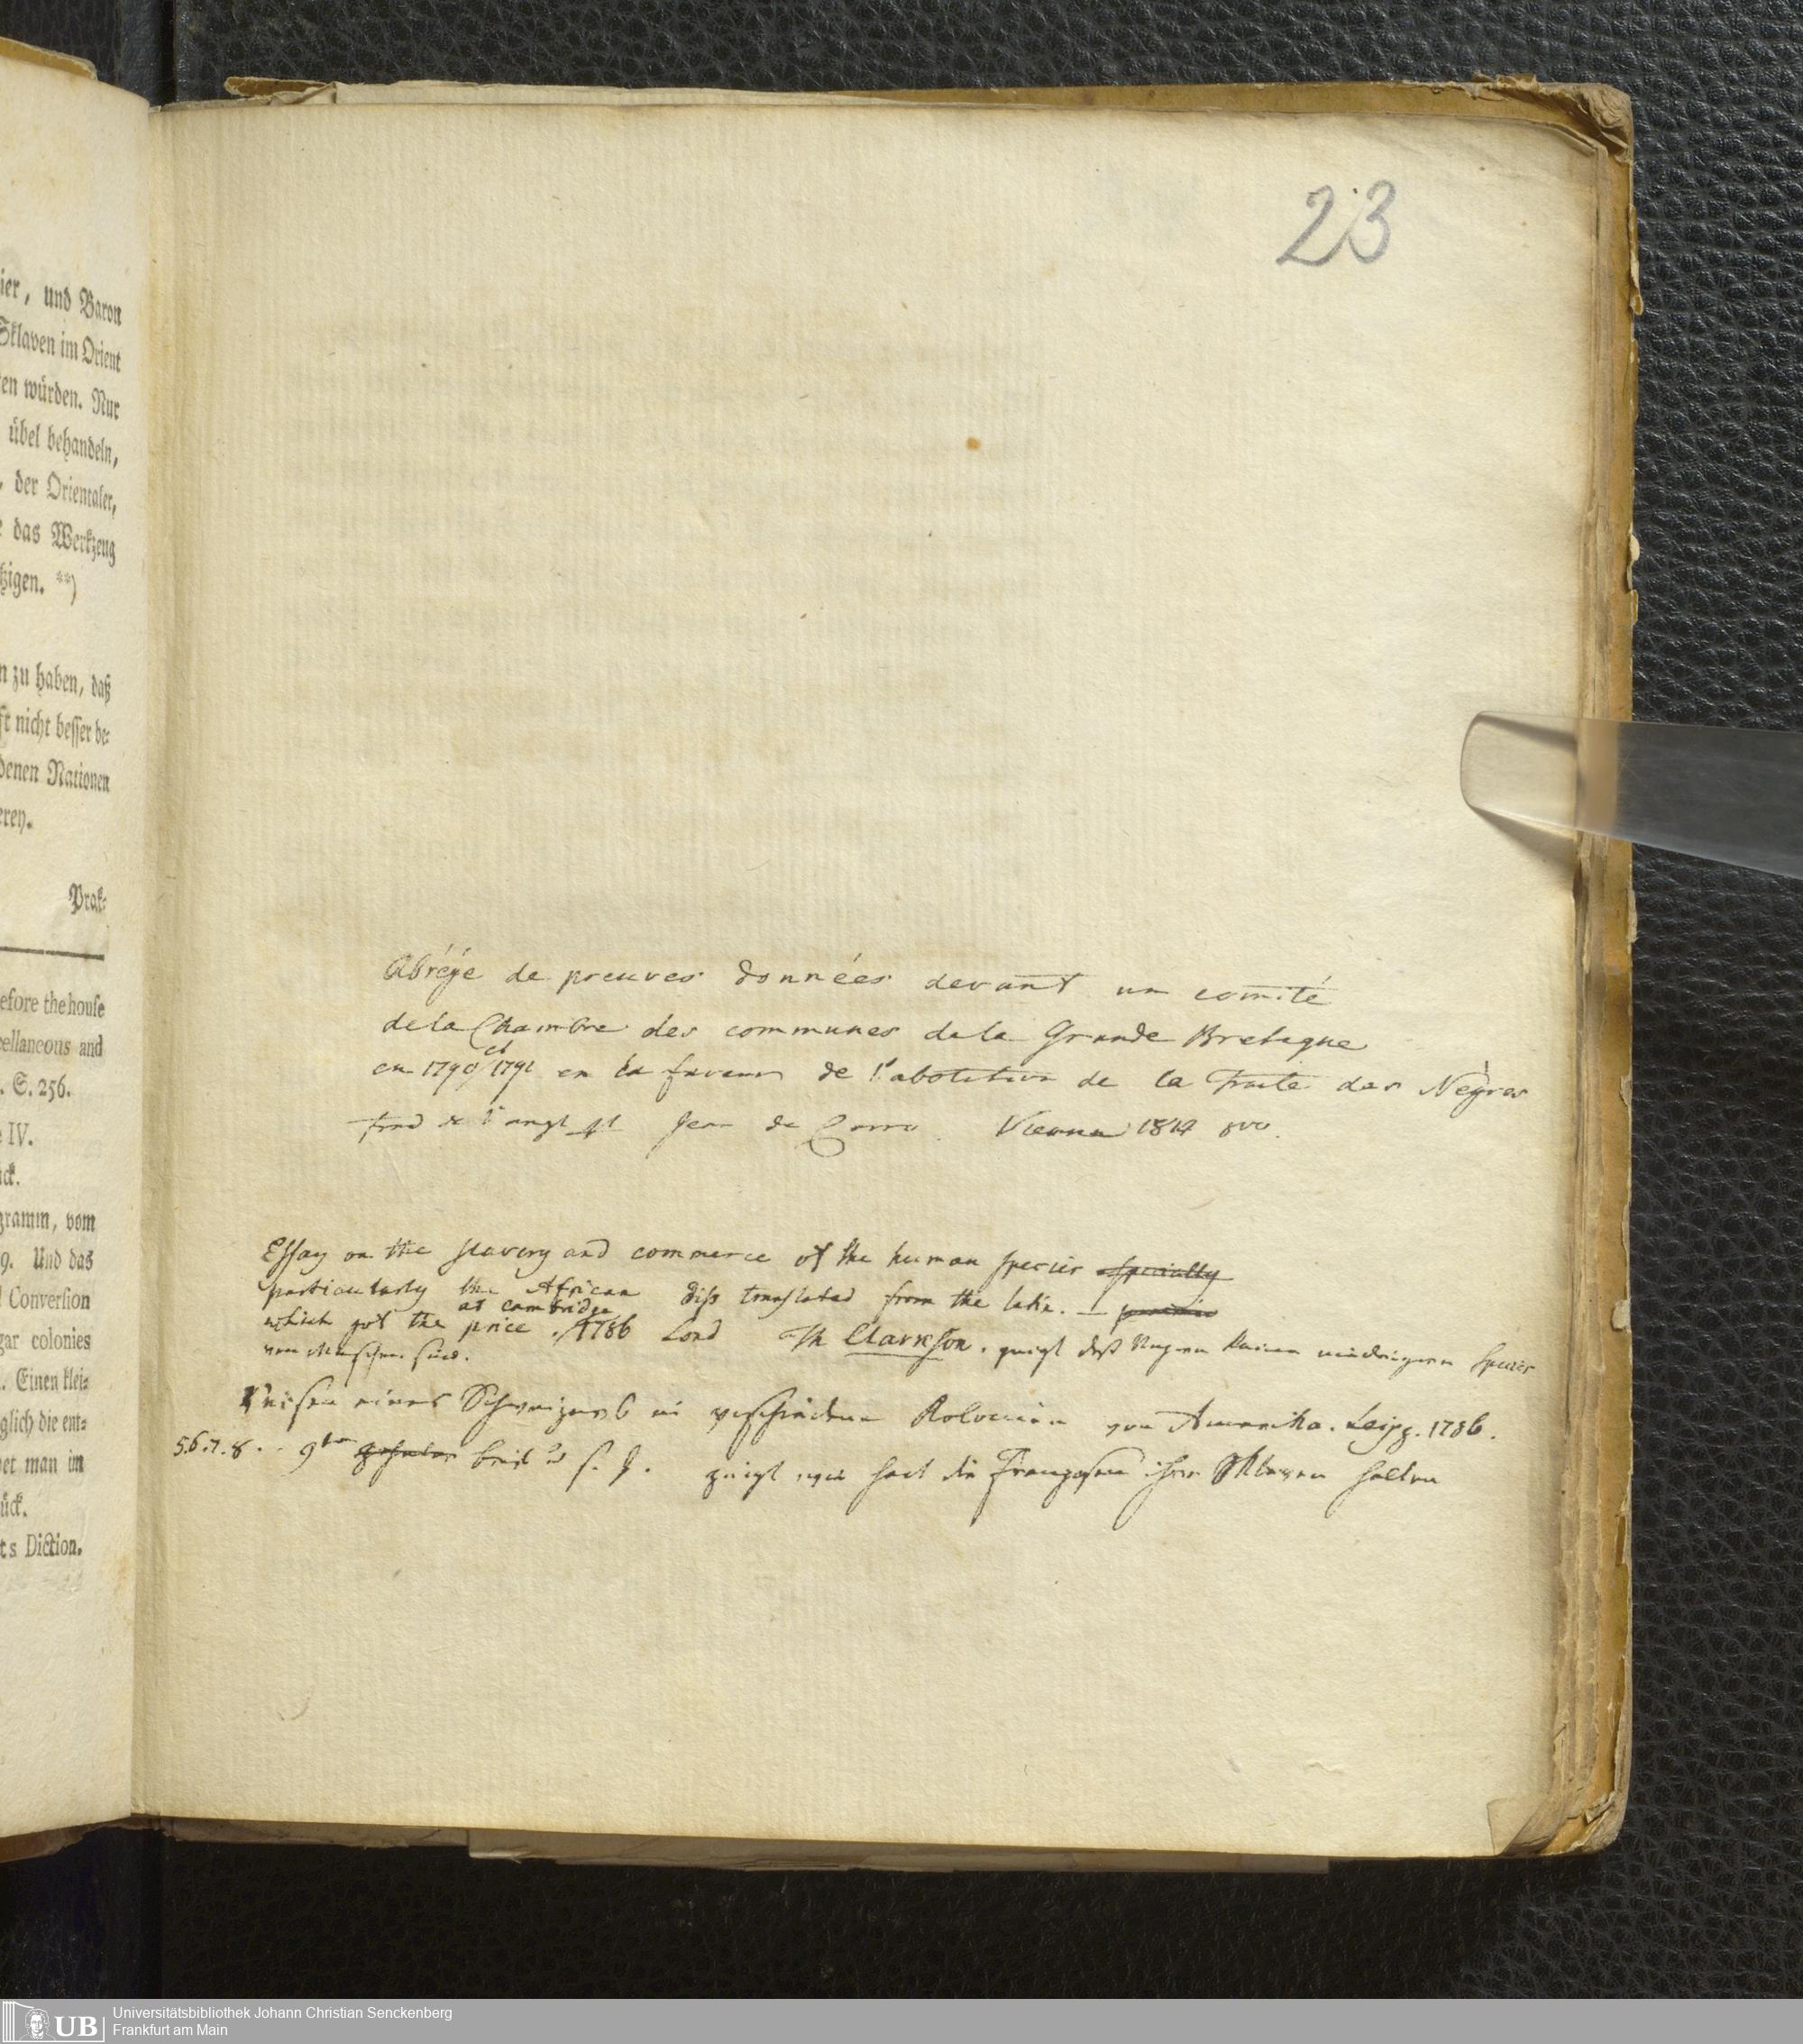 ier, und Baron
Sklaven im Orient
en würden. Nur
übel behandeln,
, der Orientaler,
e das Werkzeug
tzigen. **)
n zu haben, daß
ft nicht besser be-
denen Nationen
erey.
Prak-
efore the house
cellaneous and
. S. 256.
e IV.
ück.
gramm, vom
9. Und das
Conversion
gar colonies
. Einen klei-
glich die ent-
et man im
ück.
ts Diction.
23
Abrégé de preuves données devant un comité
de la Chambre des communes de la Grande Bretagne
en 1790 et 1791 en la faveur de l'abolition de la Traite des Nègres
trad de l'angl Jean de Carro. Vienna 1814 8vo.
Essay on the slavery and commerce of the human species specially
particularly the African diss translated from the latin. –
which got the price at Cambridge. 1786 Lond Th Clarkson. zeigt daß Neger keine niedrigern Species
von Menschen sind.
Reisen eines Schweizers in verschiedene Kolonien von Amerika. Leipz. 1786.
5.6.7.8. . 9ten Brief s. f. zeigt wie hart die Franzosen ihre Sklaven halten
UB
Universitätsbibliothek Johann Christian Senckenberg
Frankfurt am Main